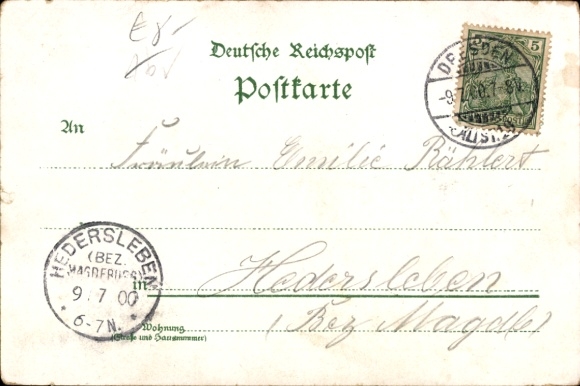 Deutsche Reichspost
Postkarte
5
DRESDEN
-9.7.00.7-8V.
ALTST.
An
Fräulein Emilie Rählert
HEDERSLEBEN
(BEZ.
MAGDEBURG)
9.7 00
6-7N.
in Hedersleben
Wohnung
(Straße und Hausnummer)
(Bez Magdb)